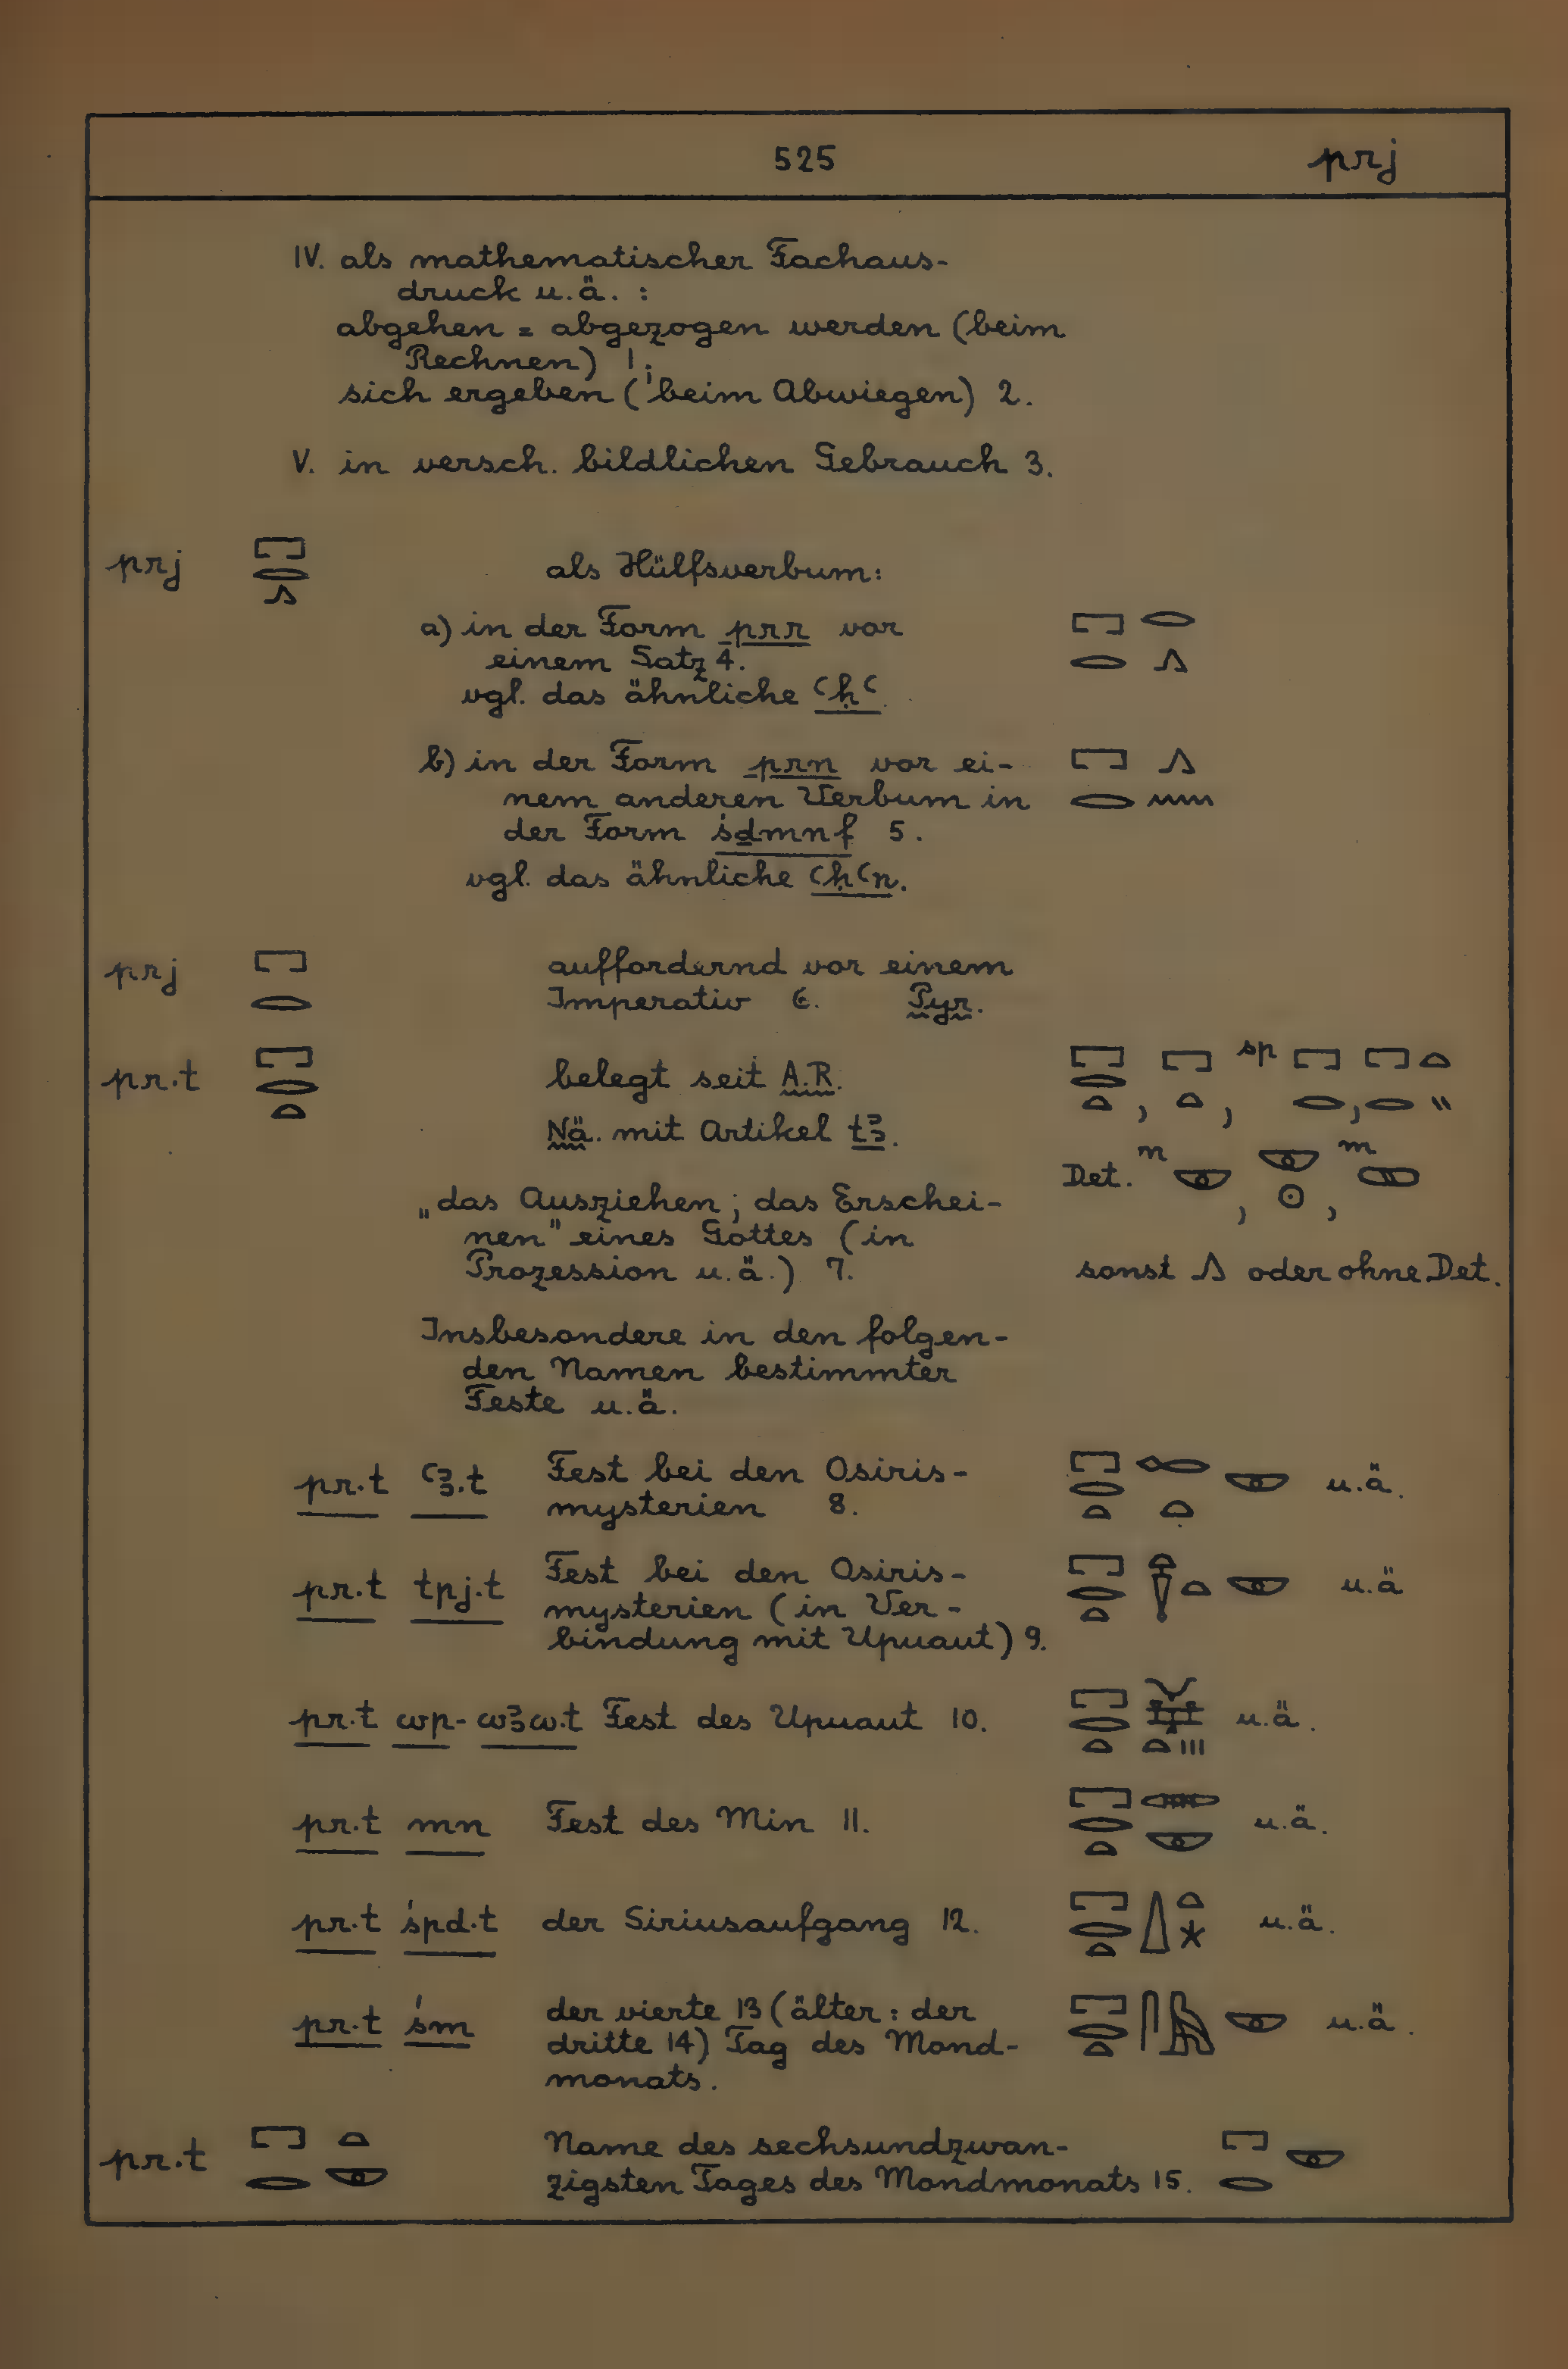 525 prj
IV. als mathematischer Fachaus-
druck u.ä. :
abgehen = abgezogen werden (beim
Rechnen) 1;
sich ergeben (beim Abwiegen) 2.
V. in versch. bildlichen Gebrauch 3.
prj 𓉐𓂋𓂻 als Hülfsverbum:
a) in der Form prr vor 𓉐𓂋𓂋𓂻
einem Satz 4.
vgl. das ähnliche ꜥḥꜥ
b) in der Form prn vor ei- 𓉐𓂋𓂻𓈖
nem anderen Verbum in
der Form śḏmnf 5.
vgl. das ähnliche ꜥḥꜥn.
prj 𓉐𓂋 auffordernd vor einem
Imperativ 6. Pyr.
pr.t 𓉐𓂋𓏏 belegt seit A.R. 𓉐𓂋𓏏, 𓉐𓏏, sp 𓉐𓂋, 𓉐𓏏𓂋𓏭
Nä. mit Artikel tꜣ.
Det. m 𓎱, 𓎱𓇳, m
„das Ausziehen; das Erschei-
nen" eines Gottes (in
Prozession u.ä.) 7. sonst 𓂻 oder ohne Det.
Insbesondere in den folgen-
den Namen bestimmter
Feste u.ä.
pr.t ꜥꜣ.t Fest bei den Osiris- 𓉐𓂋𓏏𓉻𓏏𓎱 u.ä.
mysterien 8.
pr.t tpj.t Fest bei den Osiris- 𓉐𓂋𓏏𓁶𓏏𓎱 u.ä
mysterien (in Ver-
bindung mit Upuaut) 9.
pr.t wp-wꜣw.t Fest des Upuaut 10. 𓉐𓂋𓏏𓄋𓈐𓏏𓏥 u.ä.
pr.t mn Fest des Min 11. 𓉐𓂋𓏏𓋉𓎱 u.ä.
pr.t śpd.t der Siriusaufgang 12. 𓉐𓂋𓏏𓇮𓏏𓇼 u.ä.
pr.t śm der vierte 13 (älter: der 𓉐𓂋𓏏𓋴𓅓𓎱 u.ä.
dritte 14) Tag des Mond-
monats.
pr.t 𓉐𓂋𓏏𓎱 Name des sechsundzwan- 𓉐𓂋𓎱
zigsten Tages des Mondmonats 15.